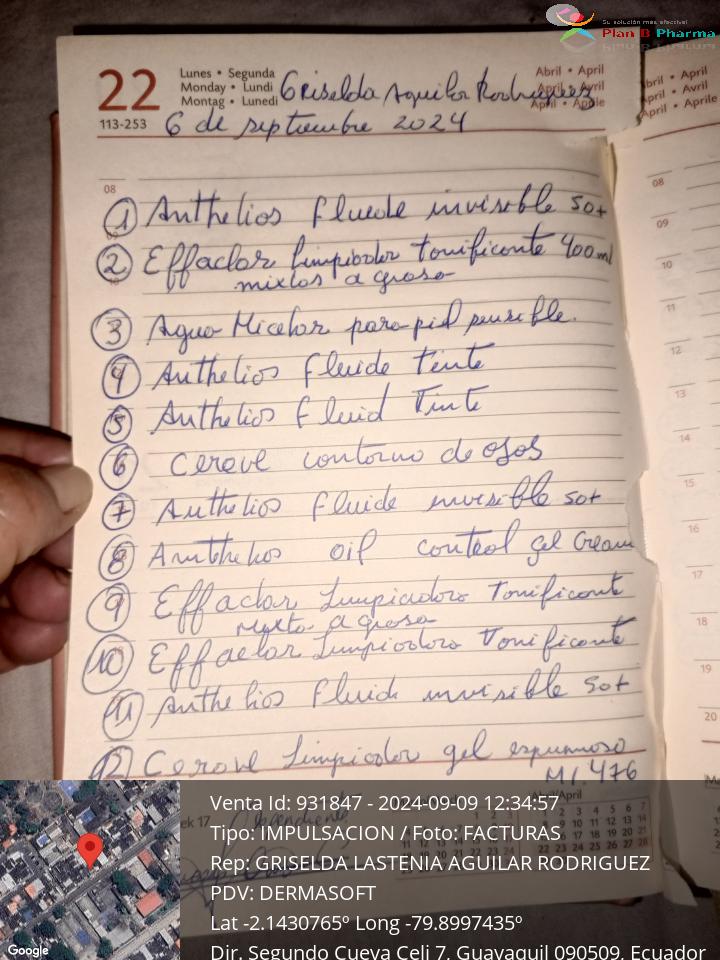 Su solución más efectiva!
Plan B Pharma
22
Lunes • Segunda
Monday • Lundi
Montag • Lunedi
Griselda Aguilar Rodriguez
Abril • April
April • Avril
April • Aprile
113-253
6 de septiembre 2024
08
① Anthelios fluede invisible 50+
② Effaclar limpiador tonificante 400 ml
mixtas a grasa
③ Agua Micelar para piel sensible.
④ Anthelios fluide tinte
⑤ Anthelios fluid Tinte
⑥ Cerave contorno de ojos
⑦ Anthelios fluide invisible 50+
⑧ Anthelios oil control gel cream
⑨ Effaclar Limpiadora Tonificante
mixta a grasa
⑩ Effaclar Limpiadora Tonificante
⑪ Anthelios fluid invisible 50+
⑫ Cerave Limpiador gel espumoso
Ml. 476
bril • April
April • Avril
April • Aprile
08
09
10
11
12
13
14
15
16
17
18
19
20
Venta Id: 931847 - 2024-09-09 12:34:57
Tipo: IMPULSACION / Foto: FACTURAS
Rep: GRISELDA LASTENIA AGUILAR RODRIGUEZ
PDV: DERMASOFT
Lat -2.1430765º Long -79.8997435º
Dir. Segundo Cueva Celi 7, Guayaquil 090509, Ecuador
Google